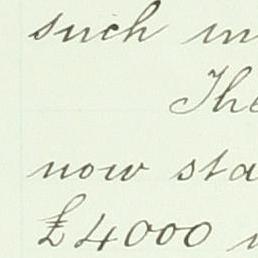 such in
The
now sta
£4000